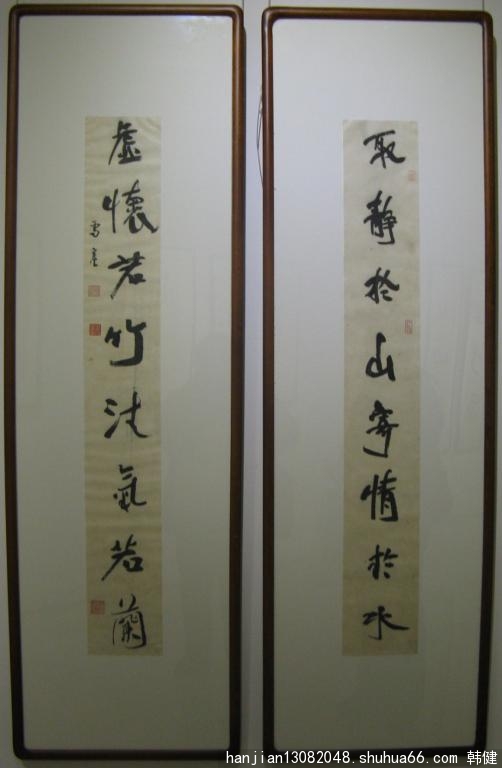 取靜於山寄情於水
虛懷若竹清氣若蘭
hanjian13082048.shuhua66.com 韩健